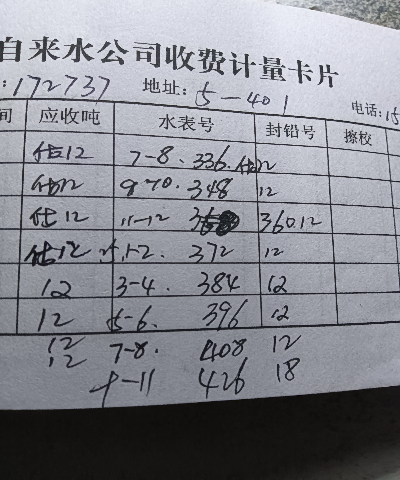 自来水公司收费计量卡片
: 172737 地址: 5-401 电话: 15
间 应收吨 水表号 封铅号 擦校
估12 7-8. 336. 估12
估12 9-10. 348 12
估12 11-12 360.12
估12 1-2. 372 12
12 3-4. 384 12
12 5-6. 396 12
12
12 7-8. 408 12
9-11 426 18